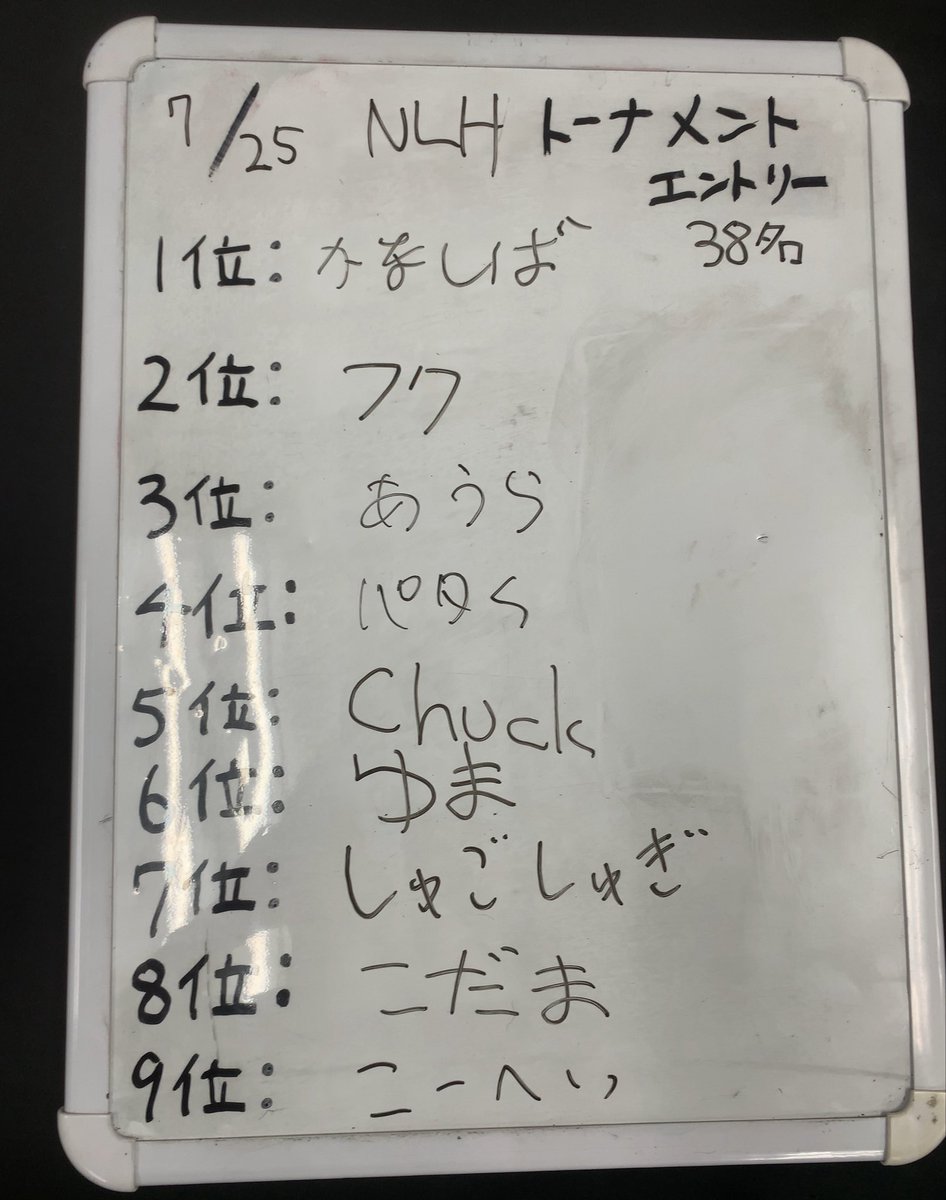 7/25 NLH トーナメント
エントリー
38名
1位: かなしば
2位: フク
3位: あうら
4位:
5位: Chuck
6位: ゆま
7位: しゅごしゅぎ
8位: こだま
9位: こーへい